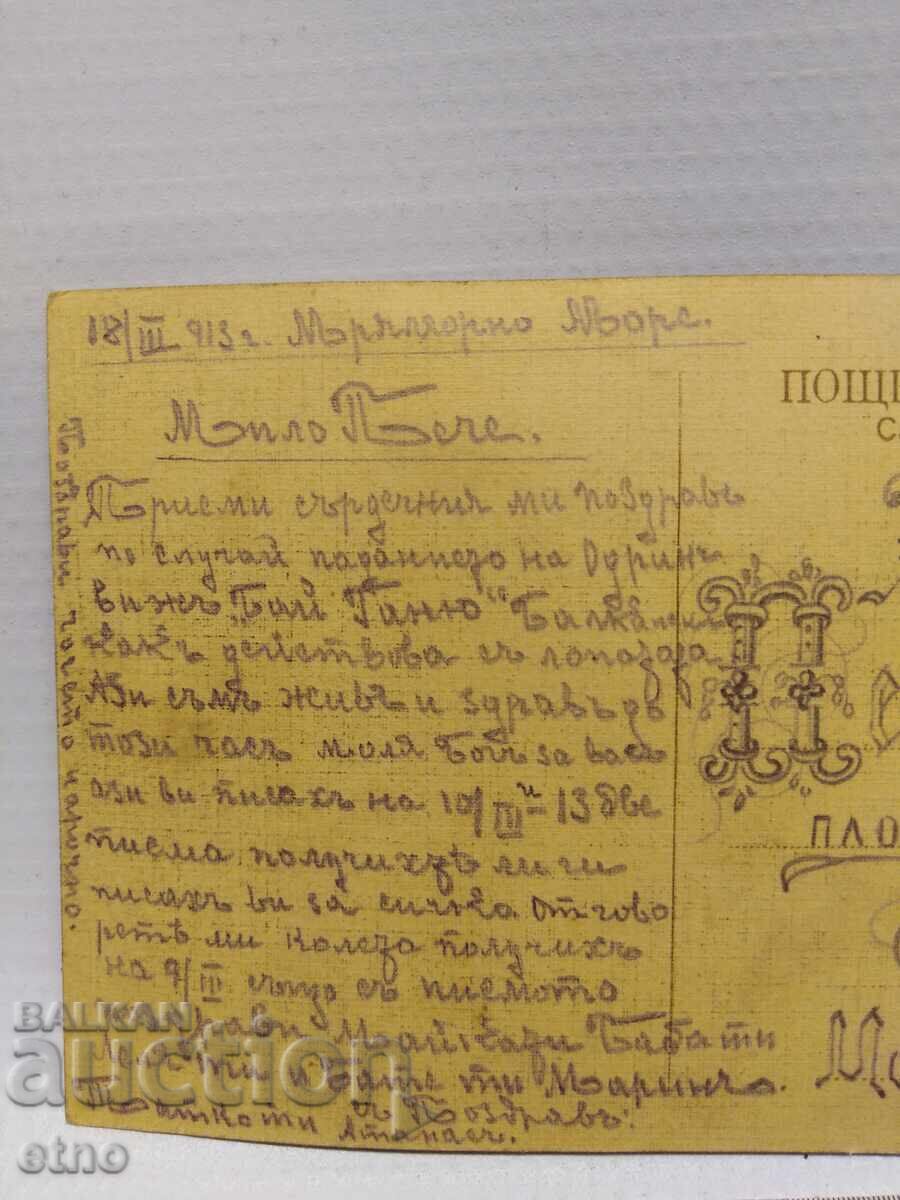 18/III 913 г. Мряморно Море.
Мило Пече.
Приеми сърдечния ми поздравъ
по случай падането на Одринъ
вижъ "Бай Ганю" Балкански
какъ действова съ лопазата
Ази съмъ живъ и здравъ до
този часъ моля Богъ за васъ
ази ви писахъ на 10/III - 13 две
писма получихте ли ги
писахъ ви за сичко отгово
рете ми колета получихъ
на 9/III също съ писмото
Поздрави Майка ти Баба ти
ти и Бате ти Маринъ.
съ Поздравъ:
Татко ти Атанасъ.
Поздрави
нарично.
ПОЩ
ПЛО
BALKAN
auction
etno